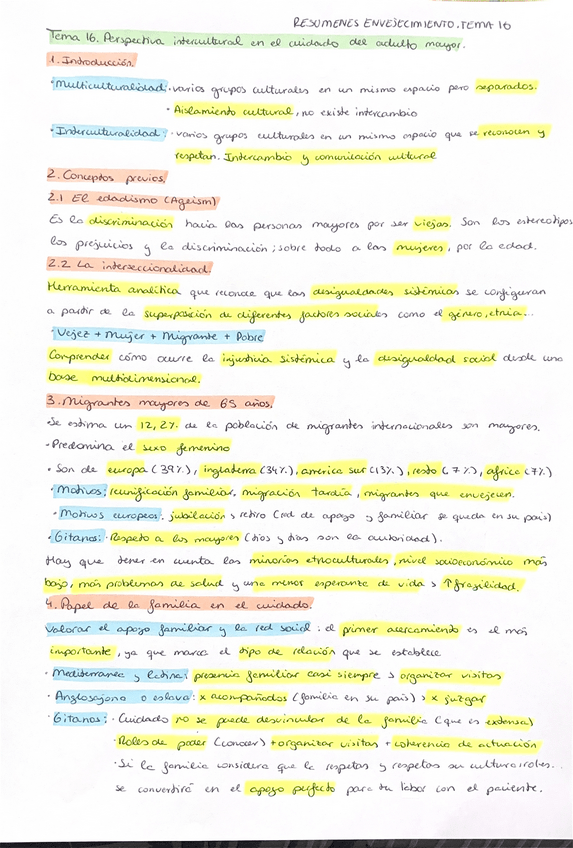 RESUMENES ENVEJECIMIENTO. TEMA 16
Tema 16. Perspectiva intercultural en el cuidado del adulto mayor.
1. Introducción.
· Multiculturalidad: varios grupos culturales en un mismo espacio pero separados.
· Aislamiento cultural, no existe intercambio
· Interculturalidad: varios grupos culturales en un mismo espacio que se reconocen y
respetan. Intercambio y comunicación cultural
2. Conceptos previos.
2.1 El edadismo (Ageism)
Es la discriminación hacia las personas mayores por ser viejas. Son los estereotipos
los prejuicios y la discriminación; sobre todo a las mujeres, por la edad.
2.2 La interseccionalidad.
Herramienta analítica que reconoce que las desigualdades sistémicas se configuran
a partir de la superposición de diferentes factores sociales como el género, etnia...
· Vejez + Mujer + Migrante + Pobre
Comprender cómo ocurre la injusticia sistémica y la desigualdad social desde una
base multidimensional.
3. Migrantes mayores de 65 años.
· Se estima un 12,2% de la población de migrantes internacionales son mayores.
· Predomina el sexo femenino
· Son de europa (39%), inglaterra (34%), america sur (13%), resto (7%), africa (7%)
· Motivos: reunificación familiar, migración tardía, migrantes que envejecen.
· Motivos europeos: jubilación y retiro (red de apoyo y familiar se queda en su país)
· Gitanos: Respeto a los mayores (tíos y tías son la autoridad).
Hay que tener en cuenta las minorías etnoculturales, nivel socioeconómico más
bajo, más problemas de salud y una menos esperanza de vida > ↑fragilidad.
4. Papel de la familia en el cuidado.
Valorar el apoyo familiar y la red social: el primer acercamiento es el más
importante, ya que marca el tipo de relación que se establece
· Mediterranea y latina: presencia familiar casi siempre > organizar visitas
· Anglosajona o eslava: x acompañados (familia en su país) > x juzgar
· Gitanos: · Cuidado no se puede desvincular de la familia (que es extensa)
· Roles de poder (conocer) + organizar visitas + coherencia de actuación
· Si la familia considera que la respetas y respetas su cultura, roles...
se convertirá en el apoyo perfecto para tu labor con el paciente.